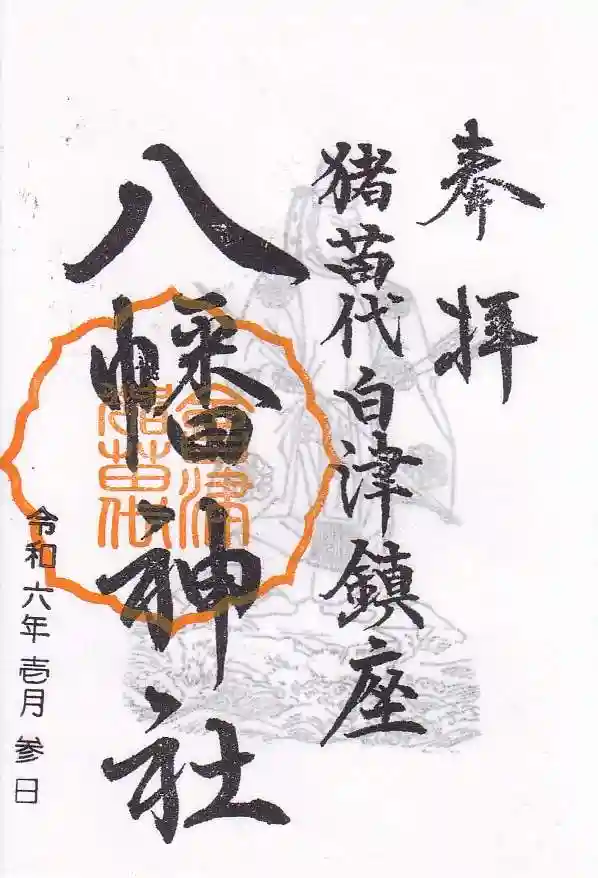 奉拝
猪苗代白津鎮座
八幡神社
会津
猪苗代
令和六年壱月参日